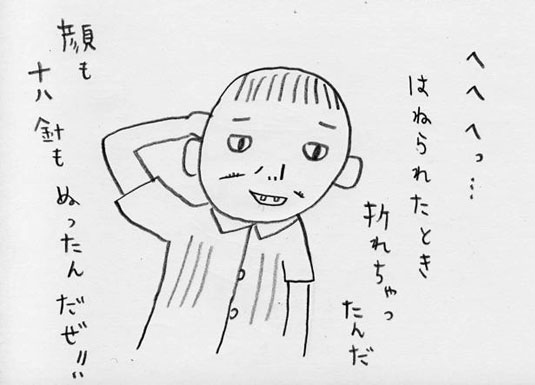 へへへっ…
はねられたとき
折れちゃっ
たんだ
顔も
十八針も
ぬったんだぜ!!